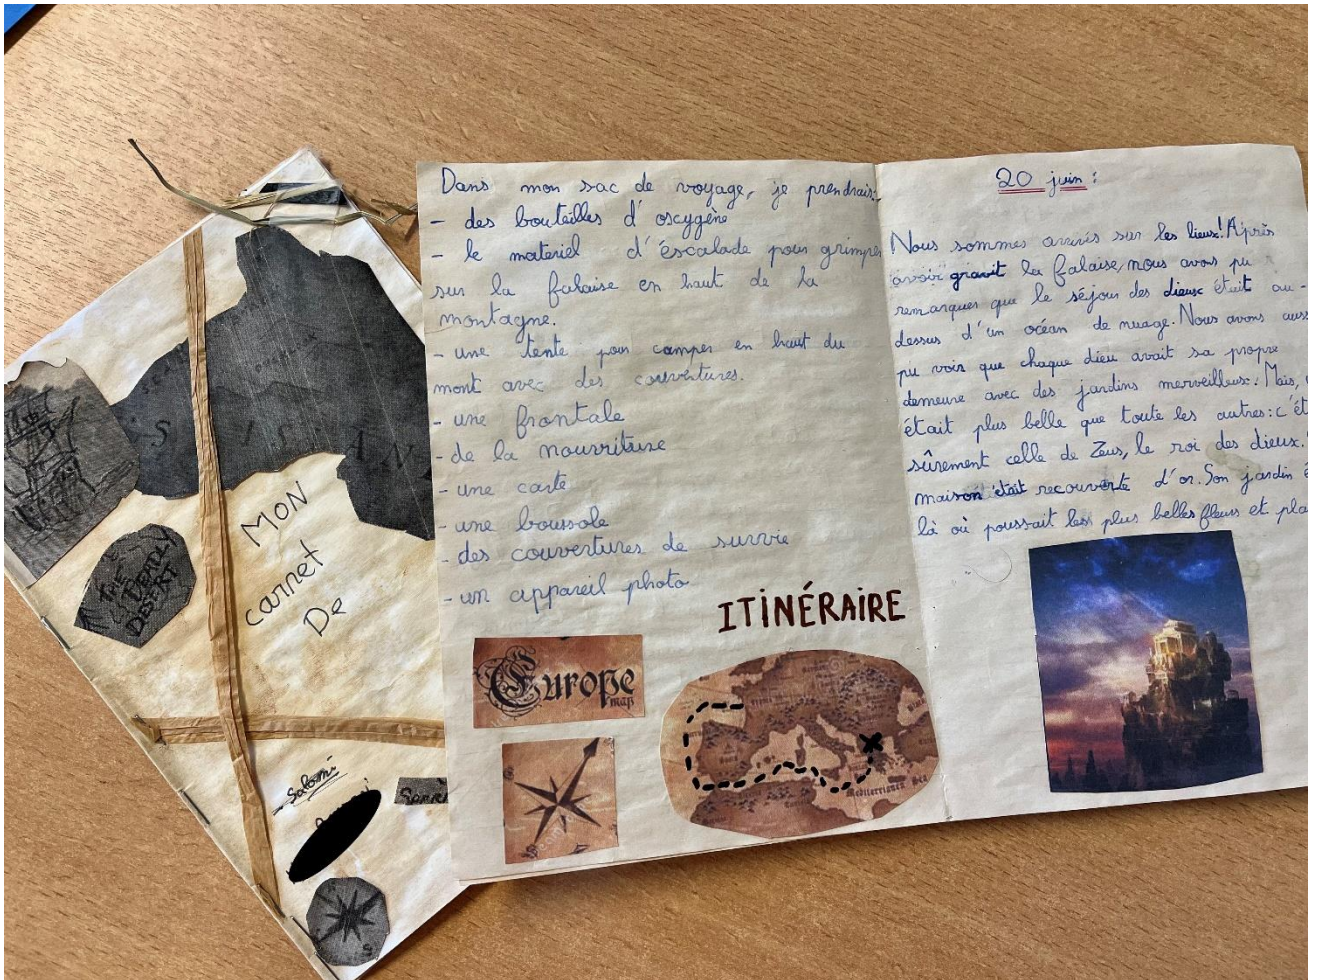 THE
DEADLY
DESERT
MON
carnet
De
Salomé
Dans mon sac de voyage, je prendrais:
- des bouteilles d'oscygène
- le materiel d'éscalade pour grimper
sur la falaise en haut de la
montagne.
- une tente pour camper en haut du
mont avec des couvertures.
- une frontale
- de la nourriture
- une carte
- une boussole
- des couvertures de survie
- un appareil photo
ITINÉRAIRE
Europe
map
Mediterranean
20 juin :
Nous sommes arrivés sur les lieux! Après
avoir gravit la falaise, nous avons pu
remarquer que le séjour des dieux était au-
dessus d'un océan de nuage. Nous avons auss
pu voir que chaque dieu avait sa propre
demeure avec des jardins merveilleux. Mais,
était plus belle que toute les autres: c'ét
sûrement celle de Zeus, le roi des dieux.
maison était recouverte d'or. Son jardin é
là où poussait les plus belles fleurs et pla